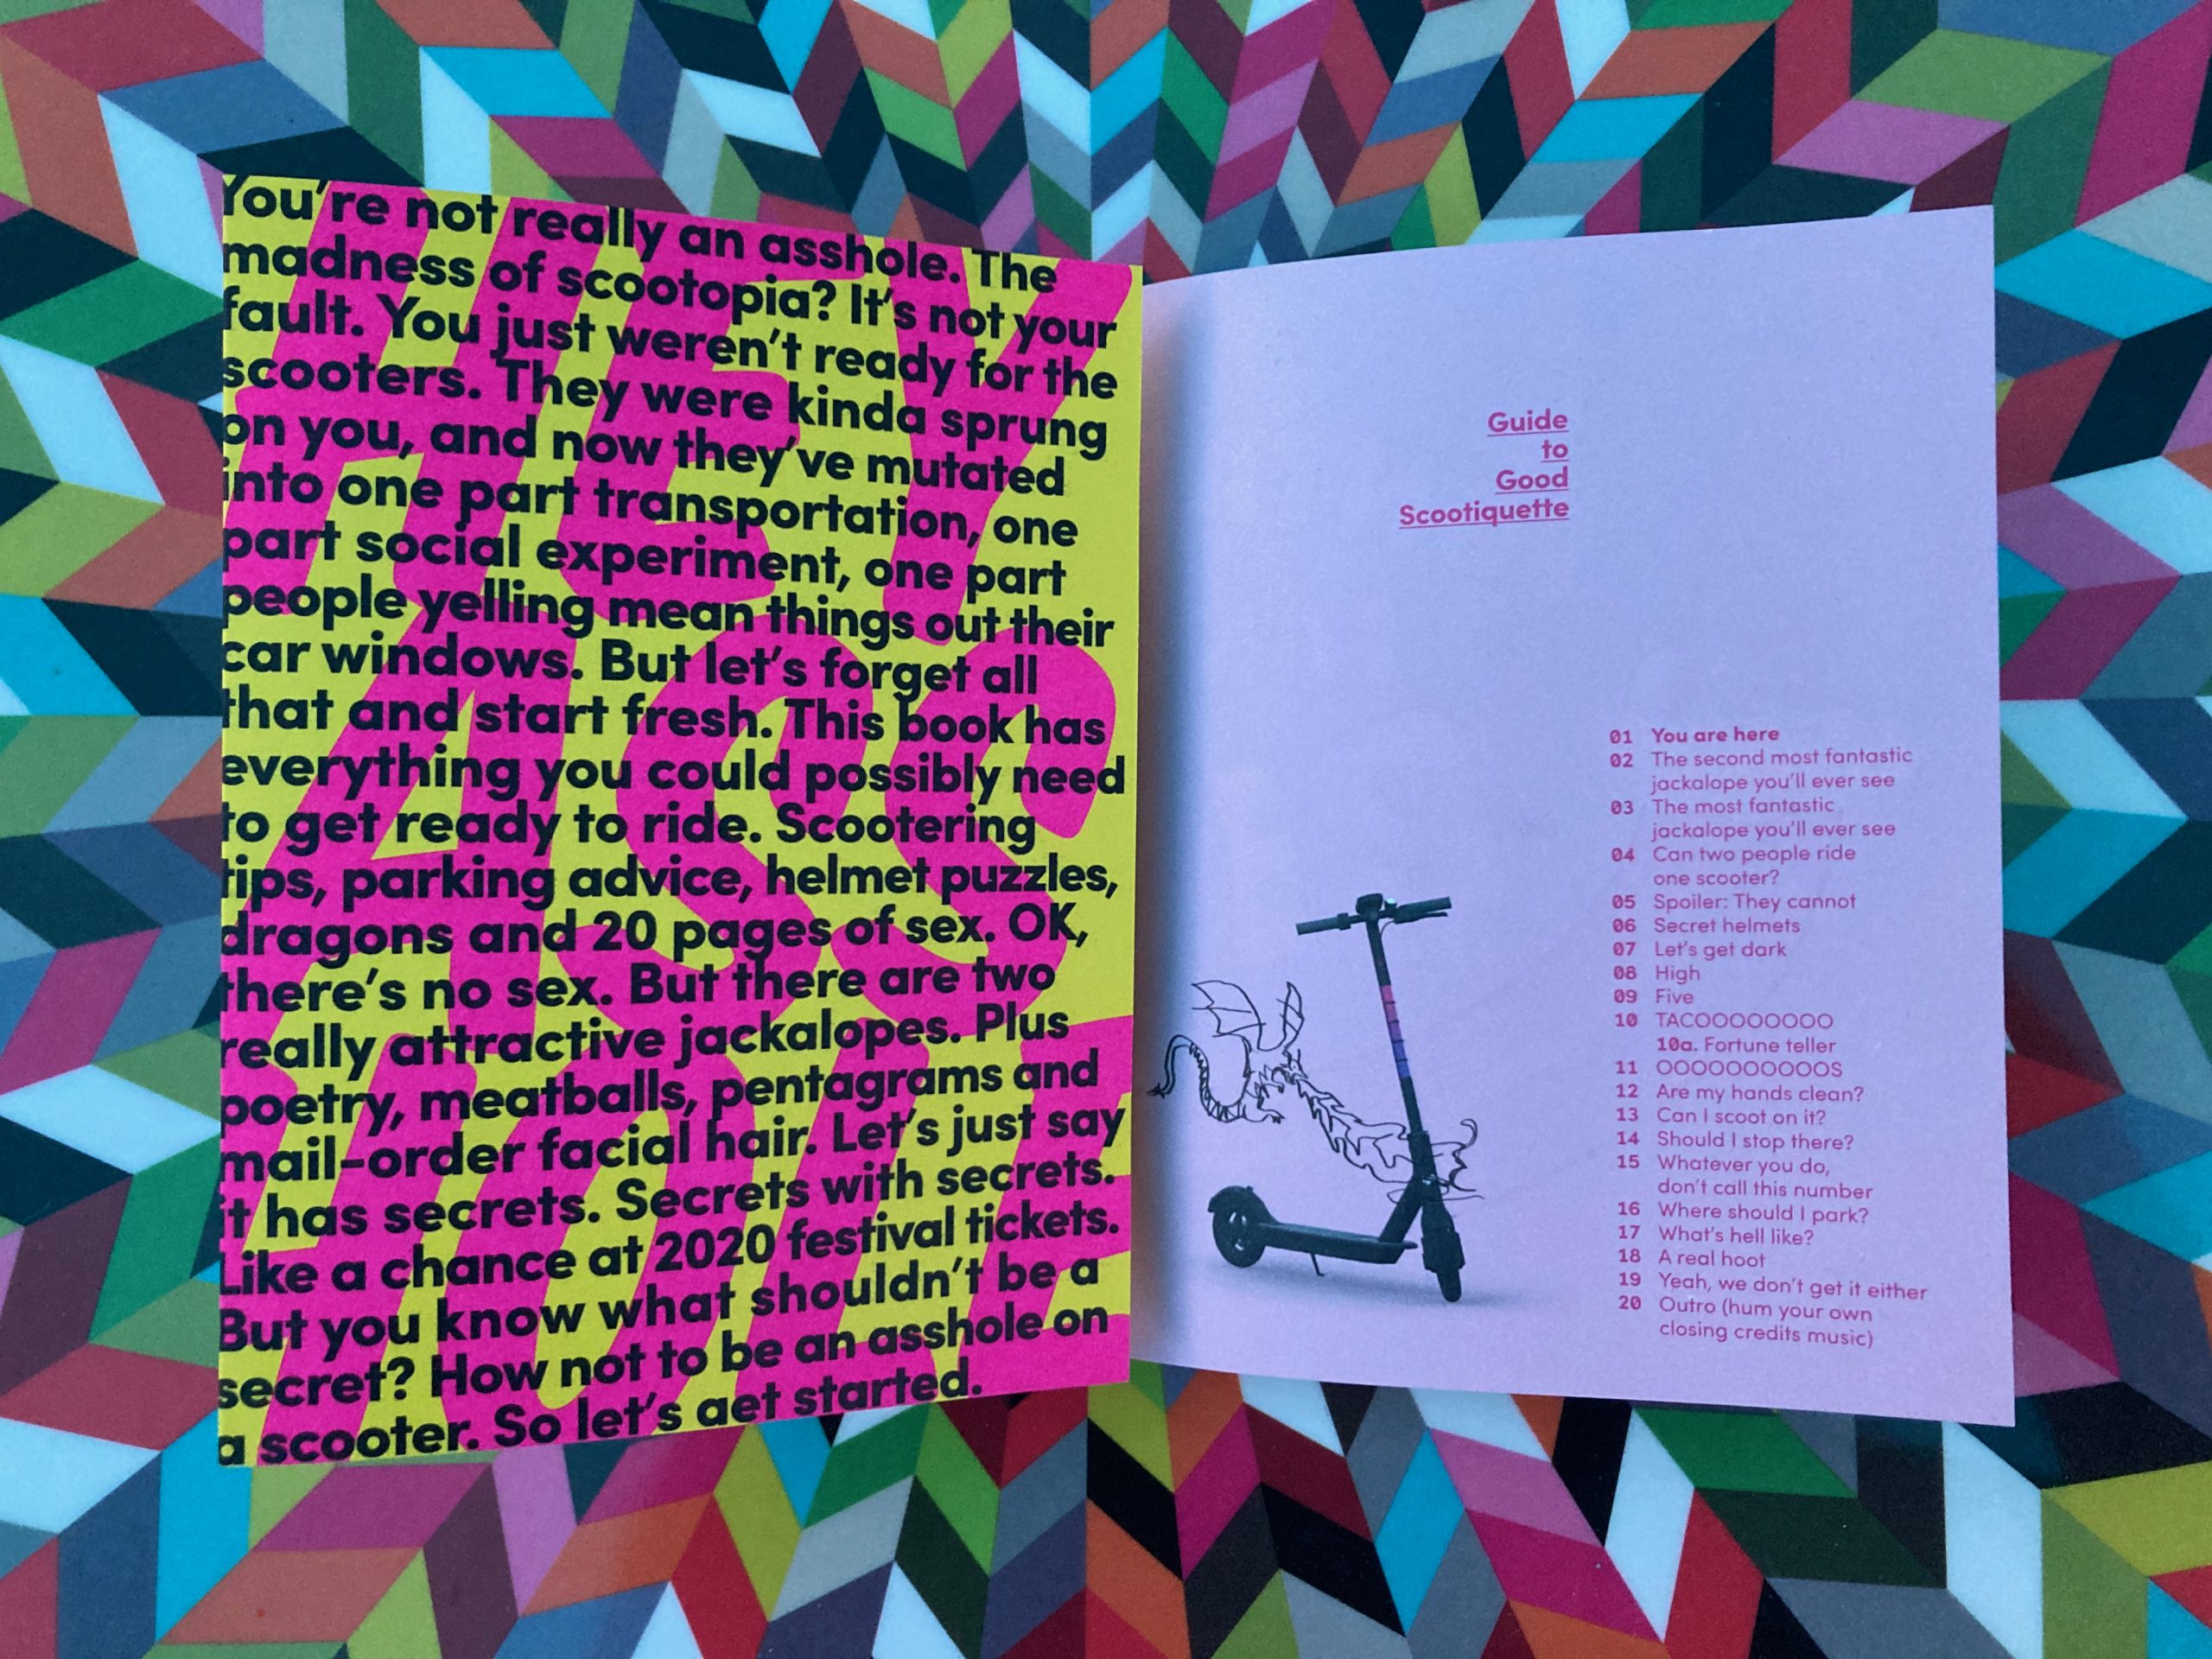 You're not really an asshole. The
madness of scootopia? It's not your
fault. You just weren't ready for the
scooters. They were kinda sprung
on you, and now they've mutated
into one part transportation, one
part social experiment, one part
people yelling mean things out their
car windows. But let's forget all
that and start fresh. This book has
everything you could possibly need
to get ready to ride. Scootering
tips, parking advice, helmet puzzles,
dragons and 20 pages of sex. OK,
there's no sex. But there are two
really attractive jackalopes. Plus
poetry, meatballs, pentagrams and
mail-order facial hair. Let's just say
it has secrets. Secrets with secrets.
Like a chance at 2020 festival tickets.
But you know what shouldn't be a
secret? How not to be an asshole on
a scooter. So let's get started.
HEY
ASS
HOLE
Guide
to
Good
Scootiquette
01 You are here
02 The second most fantastic
jackalope you'll ever see
03 The most fantastic
jackalope you'll ever see
04 Can two people ride
one scooter?
05 Spoiler: They cannot
06 Secret helmets
07 Let's get dark
08 High
09 Five
10 TACOOOOOOOO
10a. Fortune teller
11 OOOOOOOOOOS
12 Are my hands clean?
13 Can I scoot on it?
14 Should I stop there?
15 Whatever you do,
don't call this number
16 Where should I park?
17 What's hell like?
18 A real hoot
19 Yeah, we don't get it either
20 Outro (hum your own
closing credits music)